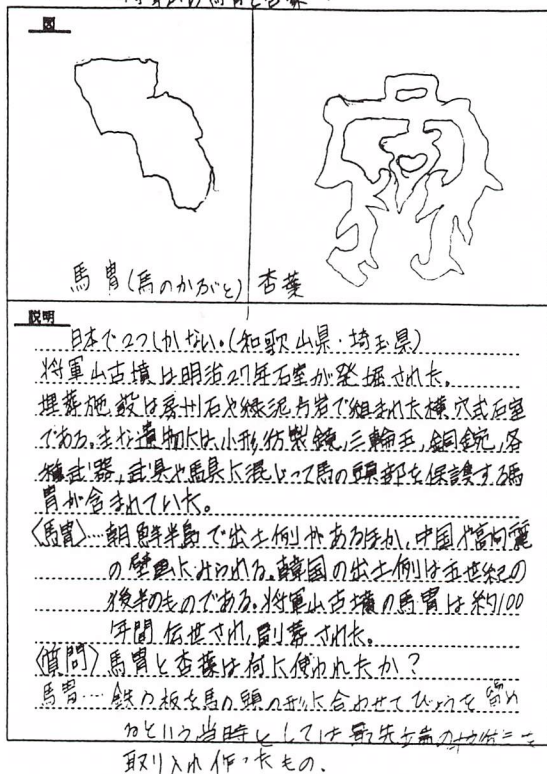 図
馬冑(馬のかぶと)
杏葉
説明
日本で2つしかない。(和歌山県・埼玉県)
将軍山古墳は明治27年石室が発掘された。
埋葬施設は房州石や緑泥片岩で組まれた横穴式石室
である。主な遺物には、小形仿製鏡、三輪玉、銅鋺、各
種武器、武具や馬具に混じって馬の頭部を保護する馬
冑が含まれていた。
〈馬冑〉…朝鮮半島で出土例があるほか、中国や高句麗
の壁画にみられる。韓国の出土例は五世紀の
後半のものである。将軍山古墳の馬冑は約100
年間伝世され、副葬された。
〈質問〉馬冑と杏葉は何に使われたか?
馬冑…鉄の板を馬の頭の形に合わせてびょうを留め
るという当時としては最先端の
取り入れ作ったもの。